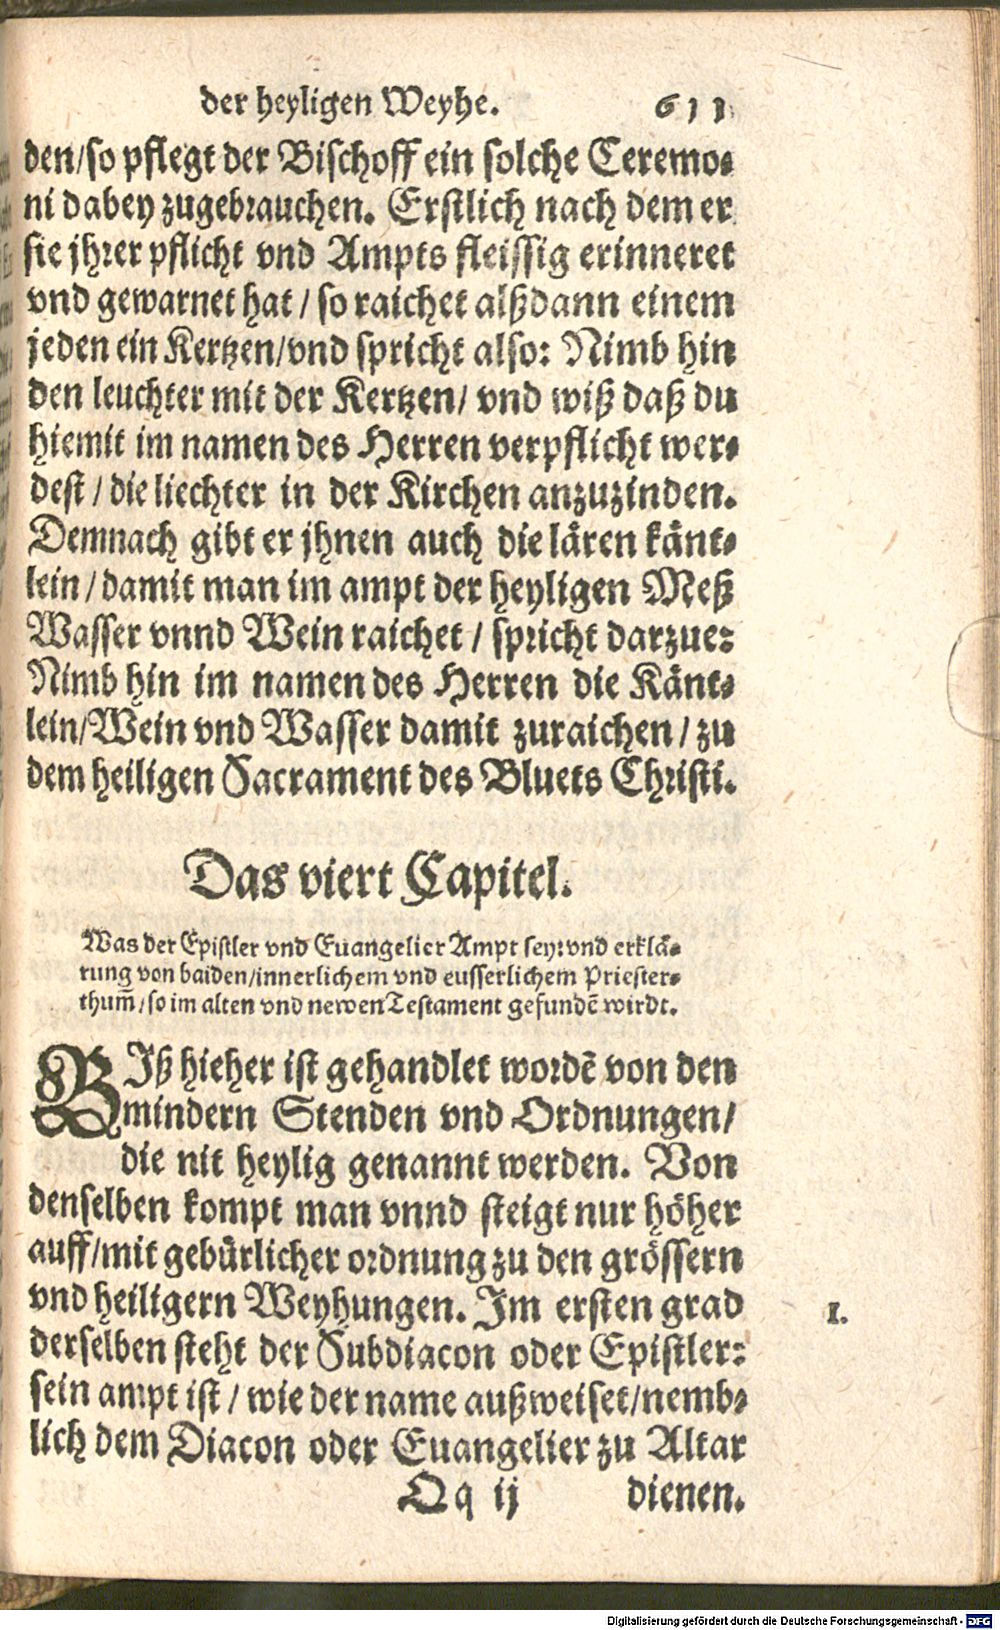 der heyligen Weyhe. 611
den/so pflegt der Bischoff ein solche Ceremo-
ni dabey zugebrauchen. Erstlich nach dem er
sie jhrer pflicht vnd Ampts fleissig erinneret
vnd gewarnet hat / so raichet alßdann einem
jeden ein Kertzen/vnd spricht also: Nimb hin
den leuchter mit der Kertzen/ vnd wiß daß du
hiemit im namen des Herren verpflicht wer-
dest / die liechter in der Kirchen anzuzinden.
Demnach gibt er jhnen auch die lären känt-
lein / damit man im ampt der heyligen Meß
Wasser vnnd Wein raichet / spricht darzue:
Nimb hin im namen des Herren die Känt-
lein/Wein vnd Wasser damit zuraichen / zu
dem heiligen Sacrament des Bluets Christi.
Das viert Capitel.
Was der Epistler vnd Euangelier Ampt sey: vnd erklä-
rung von baiden/innerlichem vnd eusserlichem Priester-
thum̃/so im alten vnd newen Testament gefundẽ wirdt.
BIß hieher ist gehandlet wordẽ von den
mindern Stenden vnd Ordnungen/
die nit heylig genannt werden. Von
denselben kompt man vnnd steigt nur höher
auff/mit gebürlicher ordnung zu den grössern
vnd heiligern Weyhungen. Im ersten grad
1.
derselben steht der Subdiacon oder Epistler:
sein ampt ist / wie der name außweiset/nemb-
lich dem Diacon oder Euangelier zu Altar
Qq ij dienen.
Digitalisierung gefördert durch die Deutsche Forschungsgemeinschaft - DFG